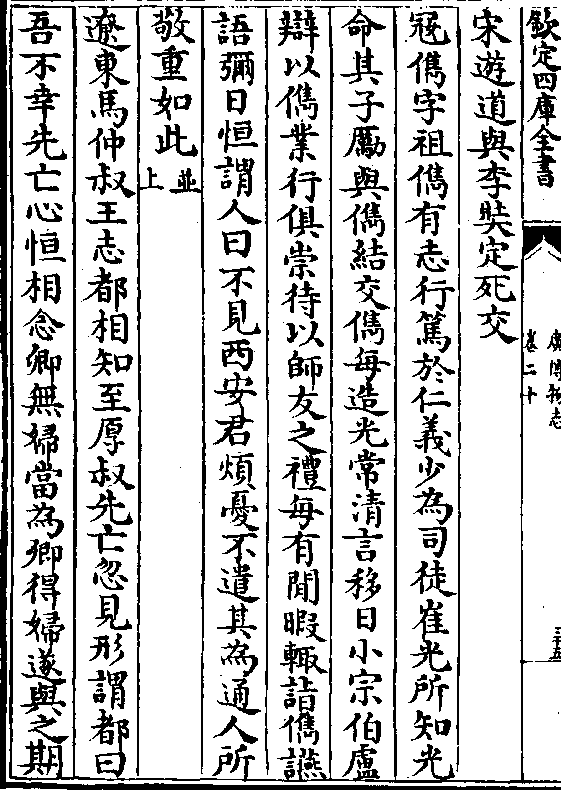 欽定四庫全書
廣博物志
卷二十
三十五
宋遊道與李奘定死交
冦儁字祖儁有志行篤於仁義少為司徒崔光所知光
命其子勵與儁結交儁每造光常清言移日小宗伯盧
辯以儁業行俱崇待以師友之禮每有閒暇輒詣儁讌
語彌日恒謂人曰不見西安君煩憂不遣其為通人所
敬重如此並上
遼東馬仲叔王志都相知至厚叔先亡忽見形謂都曰
吾不幸先亡心恒相念卿無婦當為卿得婦遂與之期